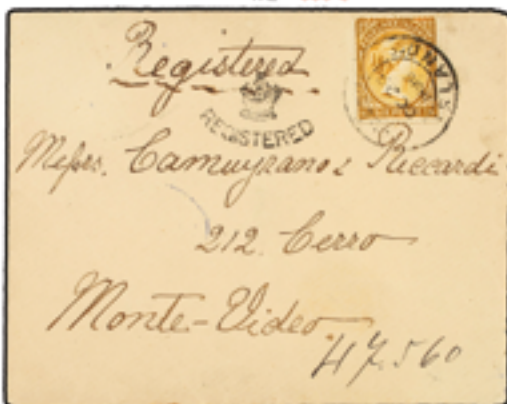 Registered
REGISTERED
Messrs. Camuyrano & Riccardi
212. Cerro
Monte-Video.
47560